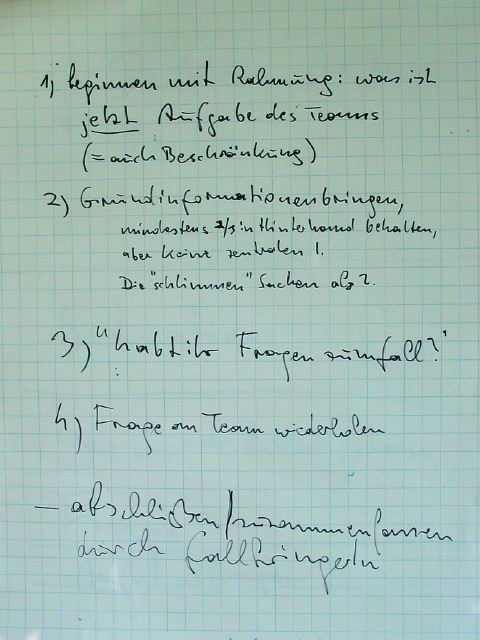 1) beginnen mit Rahmung: was ist
jetzt Aufgabe des Teams
(= auch Beschränkung)
2) Grundinformationen bringen,
mindestens 2/3 in Hinterhand behalten,
aber keine zentralen I.
Die "schlimmen" Sachen als 2.
3) "habt ihr Fragen zum Fall?"
4) Frage an Team wiederholen
— abschließen/zusammenfassen
durch